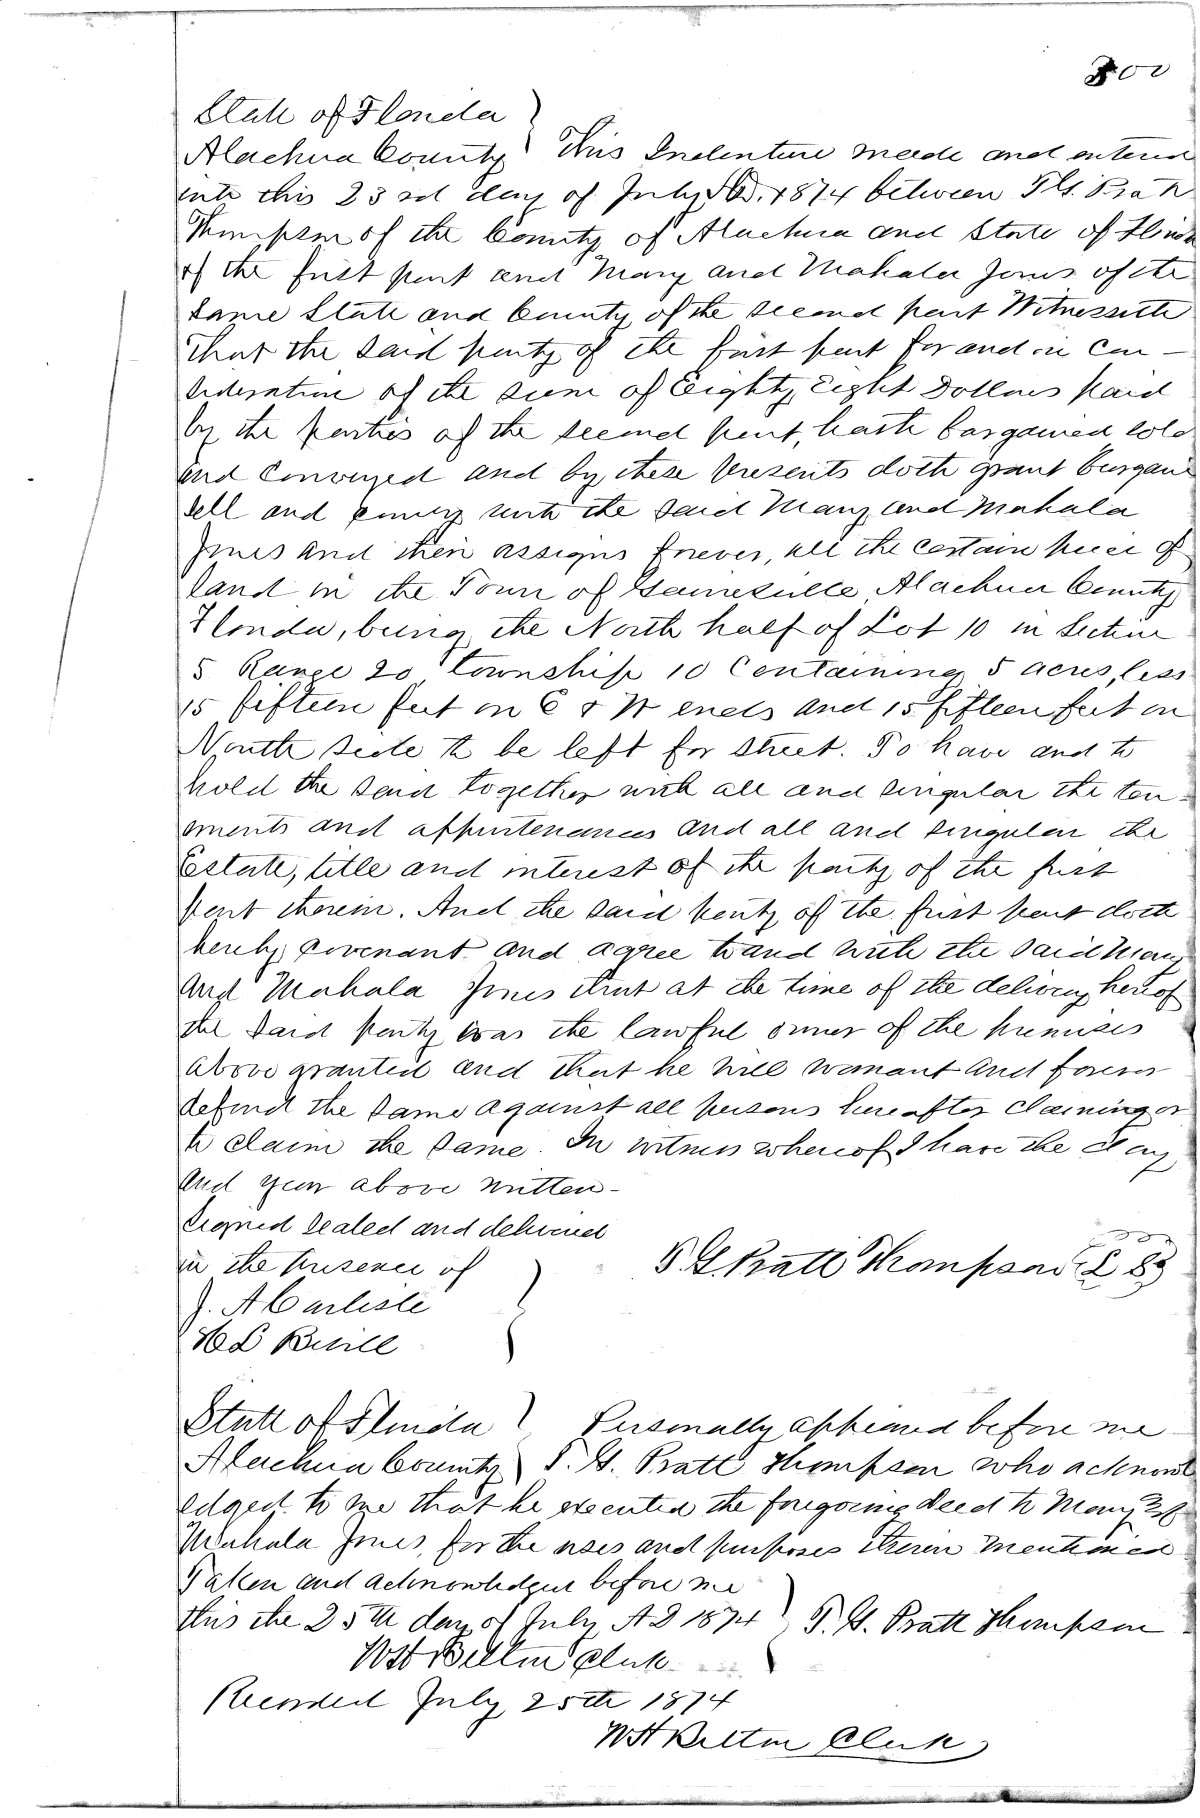 300
State of Florida
Alachua County } This Indenture made and entered
into this 23rd day of July A.D. 1874 between T.G. Pratt
Thompson of the County of Alachua and State of Florida
of the first part and Mary and Mahala Jones of the
same State and County of the second part Witnesseth
That the said party of the first part for and in con-
sideration of the sum of Eighty Eight Dollars paid
by the parties of the second part, hath bargained, sold
and Conveyed and by these presents doth grant bargain
sell and convey unto the said Mary and Mahala
Jones and their assigns forever, all the certain piece of
land in the Town of Gainesville, Alachua County
Florida, being the North half of Lot 10 in Section
5 Range 20 Township 10 Containing 5 acres, less
15 fifteen feet on E & W ends and 15 fifteen feet on
North side to be left for street. To have and to
hold the said together with all and singular the ten-
ements and appurtenances and all and singular the
Estate, title and interest of the party of the first
part therein. And the said party of the first part doth
hereby covenant and agree to and with the said Mary
and Mahala Jones that at the time of the delivery hereof
the said party was the lawful owner of the premises
above granted and that he will warrant and forever
defend the same against all persons hereafter claiming or
to claim the same. In witness whereof I have the day
and year above written-
Signed sealed and delivered
in the presence of
T. G. Pratt Thompson L S
J. A Carlisle
H L Bevill
State of Florida } Personally appeared before me
Alachua County } T. G. Pratt Thompson who acknowl
edged to me that he executed the foregoing deed to Mary &
Mahala Jones, for the uses and purposes therein mentioned
Taken and acknowledged before me
this the 25th day of July AD 1874 } T. G. Pratt Thompson
WH Belton Clerk
Recorded July 25th 1874
WH Belton Clerk